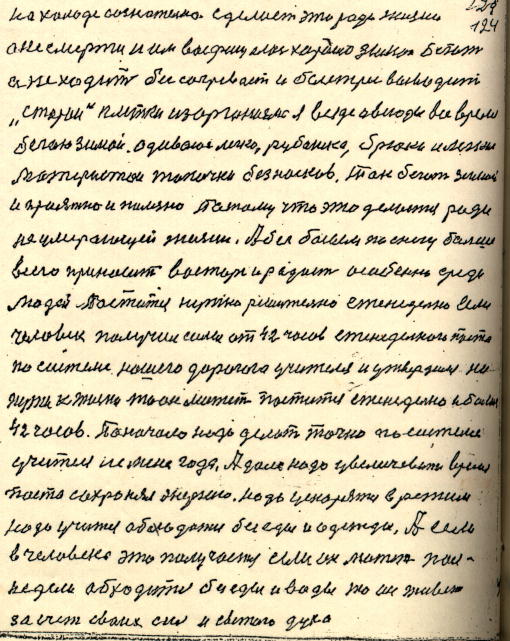 128
124
на холоде сознательно сделает это ради жизни
а не смерти и им вообщим он хорошо знает Бегат
а не ходит бег согревает и быстрее выводит
„старыи“ клетки из организма я везде а вюду все время
бегаю зимой. одиваюс легко, рубашка, брюки и легкии
матерчатои тапочки без носков. Так бегат зимой
и приятно и полезно Потому что это делается ради
не умерающей жизни. А бег босым по снегу больше
всего приносит восторг и радост особенно среди
людей Постится нужно решително еженеделно Если
человек получил силы от 42 часов еженеделного поста
по системе нашего дорогога учителя и утвердил на
жизни то он может постится еженеделно и болше
42 часов. По началу надо делат точно по системе
учителя не мене года, А дале надо увеличевать время
поста сохроняя енергию. надо ускорятся в режим
надо учится обходится без еды и одежды, А если
в человека это получается если он может пол-
недели обходится без еды и воды то он живет
за счет своих сил и святого духа